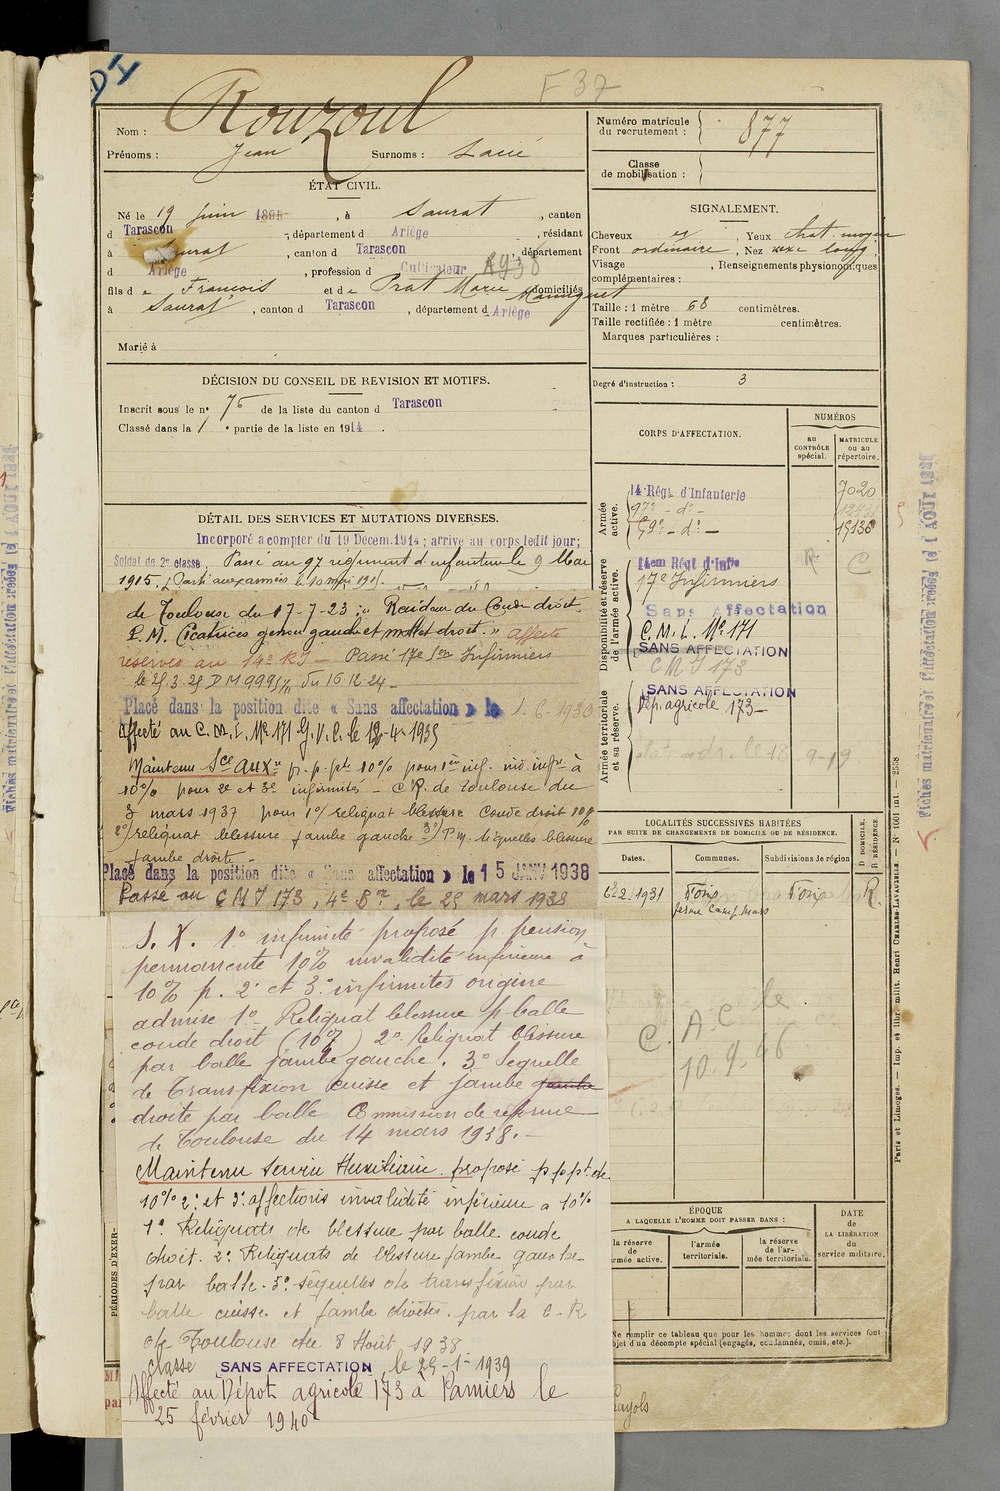 DI
F 37
Nom : Rouzoul
Prénoms : Jean Surnoms :
ÉTAT CIVIL.
Né le 19 juin 1895, à Saurat, canton
d Tarascon, département d Ariège, résidant
à Saurat, canton d Tarascon, département
d Ariège, profession d Cultivateur
fils de François et de Prat Marie domiciliés
Maninguet
à Saurat, canton d Tarascon, département d Ariège
Marié à
DÉCISION DU CONSEIL DE REVISION ET MOTIFS.
Inscrit sous le n° 75 de la liste du canton d Tarascon
Classé dans la 1° partie de la liste en 1914.
DÉTAIL DES SERVICES ET MUTATIONS DIVERSES.
Incorporé à compter du 19 Décem. 1914 ; arrivé au corps ledit jour ;
Soldat de 2e classe. Passé au 97 régiment d'infanterie le 9 Mai
1915. Parti aux armées le 10 mai 1915
de Toulouse du 17-7-23 : " Raideur du Coude droit.
P. M. Cicatrices genou gauche et mollet droit. " affecté
réserves au 14e RI — Passé 17e Son Infirmiers
le 25.3.25 D M 9995 1/7 du 16.12.24 —
Placé dans la position dite « Sans affectation » le 1.6.1930
Affecté au C. M. I. No 171 G. V. C. le 12-4-1935
Maintenu Sce Aux re pr. p. pte 10% pour 1ère inf. inv. infre à
10% pour 2e et 3e infirmités — C.R. de Toulouse du
3 mars 1937 pour 1°/ reliquat blessure Coude droit 10%
2°/ reliquat blessure jambe gauche 3°/ P.M. séquelles blessure
jambe droite —
Placé dans la position dite « Sans affectation » le 15 JANV 1938
Passé au C M I 173, 4e Bon, le 25 mars 1938
S. X. 1° infirmité proposé p. pension
permanente 10% invalidité inférieure à
10% p. 2e et 3e infirmités origine
admise 1° Reliquat blessure p balle
coude droit (10%) 2° Reliquat blessure
par balle jambe gauche. 3° Sequelle
de transfixion cuisse et jambe jambe
droite par balle Commission de réforme
de Toulouse du 14 mars 1938. —
Maintenu Service Auxiliaire. proposé p p pte de
10% 2e et 3e affections invalidité inférieure à 10%
1° Reliquats de blessure par balle coude
droit. 2° Reliquats de blessure jambe gauche
par balle. 3° séquelles de transfixion par
balle cuisse et jambe droites. par la C. R
de Toulouse du 8 Août 1938
Classé SANS AFFECTATION, le 25-1-1939
Affecté au Dépôt agricole 173 à Pamiers le
25 février 1940
PÉRIODES D'EXER-
Numéro matricule du recrutement : 877
Classe de mobilisation :
SIGNALEMENT.
Cheveux, Yeux chat. moyen
Front ordinaire, Nez
Visage, Renseignements physionomiques
complémentaires :
Taille : 1 mètre 68 centimètres.
Taille rectifiée : 1 mètre centimètres.
Marques particulières :
Degré d'instruction : 3
CORPS D'AFFECTATION.
NUMÉROS
au CONTRÔLE spécial.
MATRICULE ou au répertoire.
Armée active.
14e Régt d'Infanterie 7020
97e — d° —
59e — d° — 15136
Disponibilité et réserve de l'armée active.
14em Régt d'Infie
17e Infirmiers
Sans Affectation
C. M. I. No 171
SANS AFFECTATION
C M I 173
Armée territoriale et sa réserve.
SANS AFFECTATION
Dép. agricole 173 —
LOCALITÉS SUCCESSIVES HABITÉES
PAR SUITE DE CHANGEMENTS DE DOMICILE OU DE RÉSIDENCE.
Dates. Communes. Subdivisions de région D DOMICILE. R RÉSIDENCE.
12.2.1931 Foix Foix R.
ferme Camp Mars
C. A C le
10.9.46
ÉPOQUE
A LAQUELLE L'HOMME DOIT PASSER DANS :
la réserve de l'armée active.
l'armée territoriale.
la réserve de l'armée territoriale.
DATE de LA LIBÉRATION du service militaire.
Ne remplir ce tableau que pour les hommes dont les services font
objet d'un décompte spécial (engagés, condamnés, omis, etc.).
Paris et Limoges. — Imp. et libr. milit. Henri CHARLES-LAVAUZELLE. — N° 1001 int. — 2558